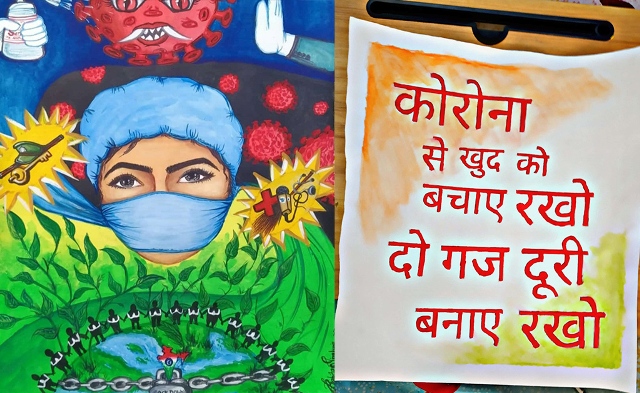 कोरोना
से खुद को
बचाए रखो
दो गज दूरी
बनाए रखो